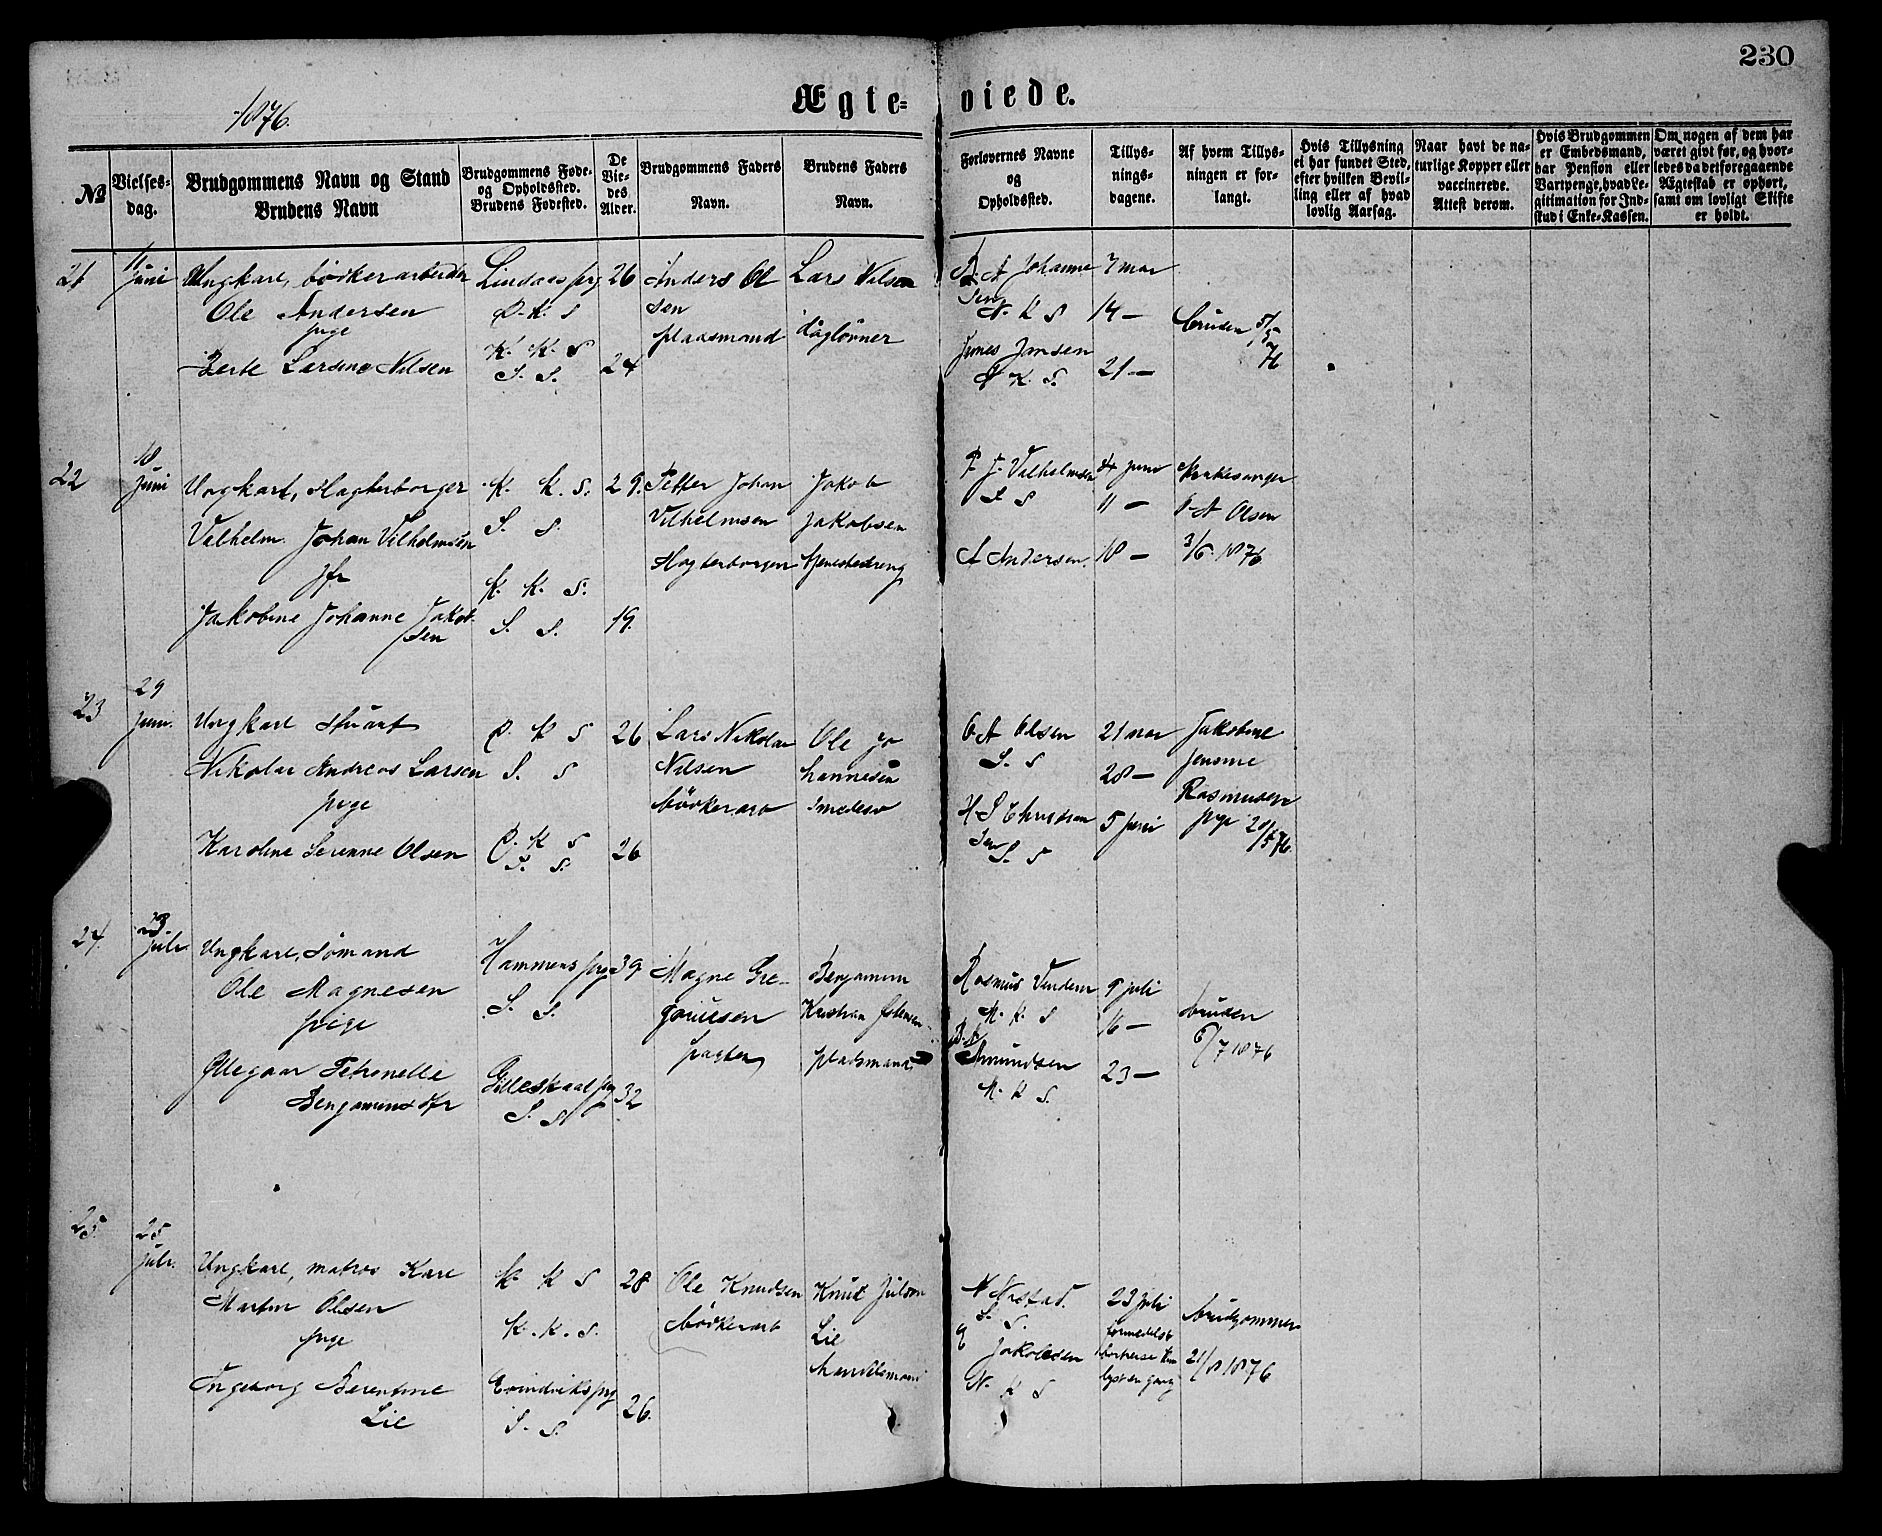 230
1876.
Ægte= viede.
No
Vielses-
dag.
Brudgommens Navn og Stand
Brudens Navn
Brudgommens Føde-
og Opholdssted.
Brudens Fødested.
De
Vie-
des
Alder.
Brudgommens Faders
Navn.
Brudens Faders
Navn.
Forlovernes Navne
og
Opholdssted.
Tillys-
nings-
dagene.
Af hvem Tillys-
ningen er for-
langt.
Hvis Tillysning
ei har fundet Sted,
efter hvilken Bevil-
ling eller af hvad
lovlig Aarsag.
Naar havt de na-
turlige Kopper eller
vaccinerede.
Attest derom.
Hvis Brudgommen
er Embedsmand,
har Pension eller
Vartpenge, hvad Le-
gitimation for Ind-
skud i Enke-Kassen.
Om nogen af dem har
været givt før, og hvor-
ledes da det foregaaende
Ægteskab er ophørt,
samt om lovligt Skifte
er holdt.
21
11
Juni
Ungkarl, bödkerarbeider
Ole Andersen
pige
Larsine Nilsen
Lindaas prg
K. S
K. K. S
S. S.
26
24
Anders Ol
sen
pladsmand
Lars Nilsen
dagløner
A Johanne
sen
N. K S
Jansen
K. S.
7 mai
14 —
21 —
bruden 5/5
76
22
18
Juni
Ungkarl, Slagterborger
Vilhelm Johan Vilhelmsen
pige
Jakobine Johanne Jakob
sen
K. K. S.
S. S.
K. K. S.
S. S.
29.
19.
Petter Johan
Vilhelmsen
Slagterborger
Jakob
Jakobsen
tjenestedreng
P. J. Vilhelmsen
S S
A Andersen
4 juni
11 —
18 —
Kirkesanger
O A Olsen
3/6 1876
23
29
juni.
Ungkarl Stuart
Nikolai Andreas Larsen
pige
Karoline Serenne Olsen
K S
S. S
K S
S. S.
26
26
Lars Nikolai
Nilsen
bödkerarb
Ole Jo
hannesen
smedesv
O A Olsen
S. S
H S Christian
sen
S. S
21 mai
28 —
5 juni
Jakobine
Jensine
Rasmusen
pige 20/5 76.
24.
23.
juli.
Ungkarl, sömand
Ole Magnesen
pige
Petronelle
Benjaminsdtr
Hammers prg
S. S.
Gilleskaal prg
S. S.
39
32
Magne Gre-
goriusen
Benjamin
Kristian
pladsmand
Rasmus
N. K S
Amundsen
N. K S.
9 juli
16 —
23 —
bruden
6/7 1876
25.
25
juli.
Ungkarl, matros Karl
Martin Olsen
pige
Ingeborg Berentine
Lie
K. K S
K. K. S.
Evindviks prg
S. S.
28
26.
Ole Knudsen
bödkerarb
Knut
Lie
handelsmand
S. S.
Jakobsen
N. K S
23 juli
formedelst
lyst en gang
brudgommen
1876